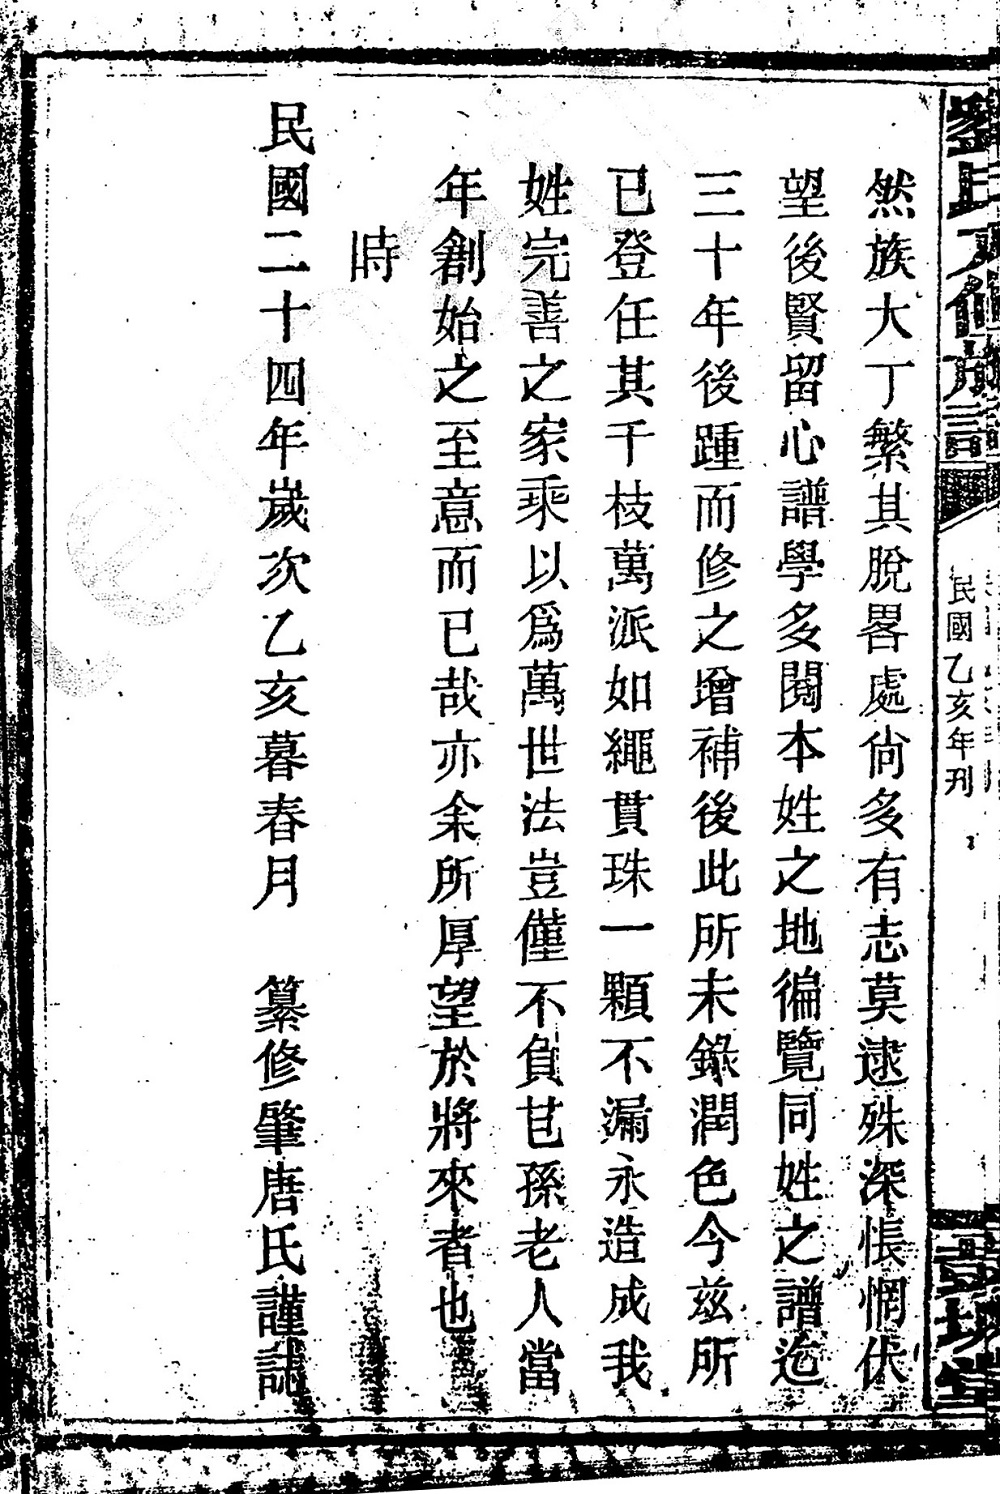 然族大丁繁其脫畧處尙多有志莫逮殊深悵惘伏
望後賢留心譜學多閱本姓之地徧覽同姓之譜迄
三十年後踵而修之增補後此所未錄潤色今茲所
已登任其千枝萬派如繩貫珠一顆不漏永造成我
姓完善之家乘以爲萬世法豈僅不負甘孫老人當
年創始之至意而已哉亦余所厚望於將來者也
時
民國二十四年歲次乙亥暮春月　纂修肇唐氏謹誌
民國乙亥年刊